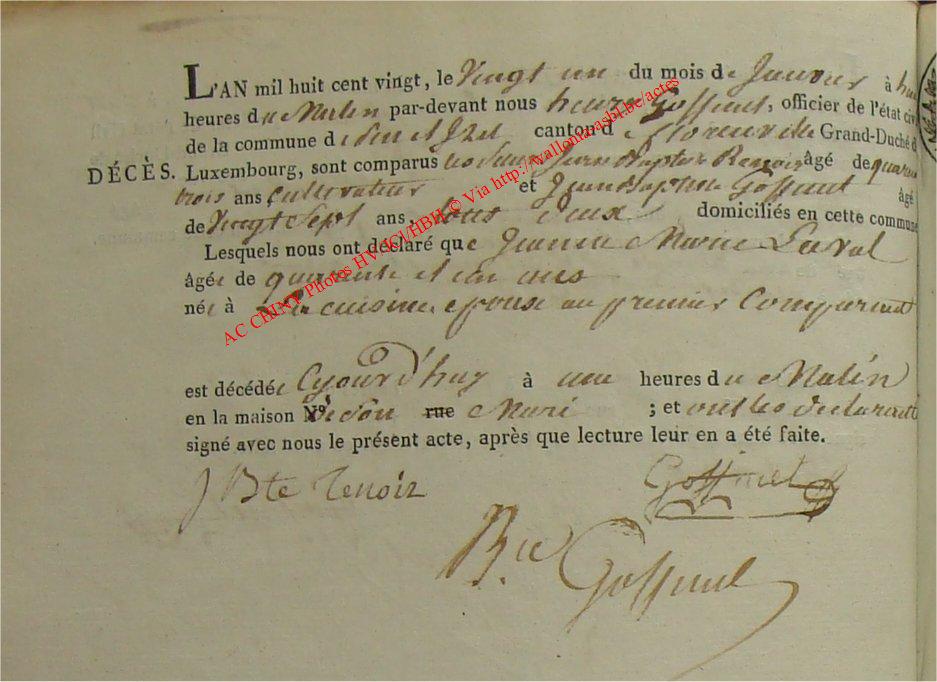 L'AN mil huit cent vingt, le Vingt un du mois de Janvier à huit
heures du Matin par-devant nous henry Goffinet, officier de l'état civ
de la commune d canton de florenville Grand-Duché d
DÉCÈS. Luxembourg, sont comparus les Sieurs Jean Baptiste Renoir âgé de quarante
trois ans, Cultivateur et Jean Baptiste Goffinet âgé
de Vingt Sept ans, tous deux domiciliés en cette commune
Lesquels nous ont déclaré que Jeanne Marie Laval
âgée de quarante et un ans
née à La cuisine epouse au premier Comparant
est décédée Cejourd'huy à une heures du Matin
en la maison N.º de son rue Mari ; et ont les declarants
signé avec nous le présent acte, après que lecture leur en a été faite.
J Bte Renoir
Goffinet
Bte Goffinet
AC CHINY Photos HV/ICI/HBH © Via http://wallonia.asbl.be/actes